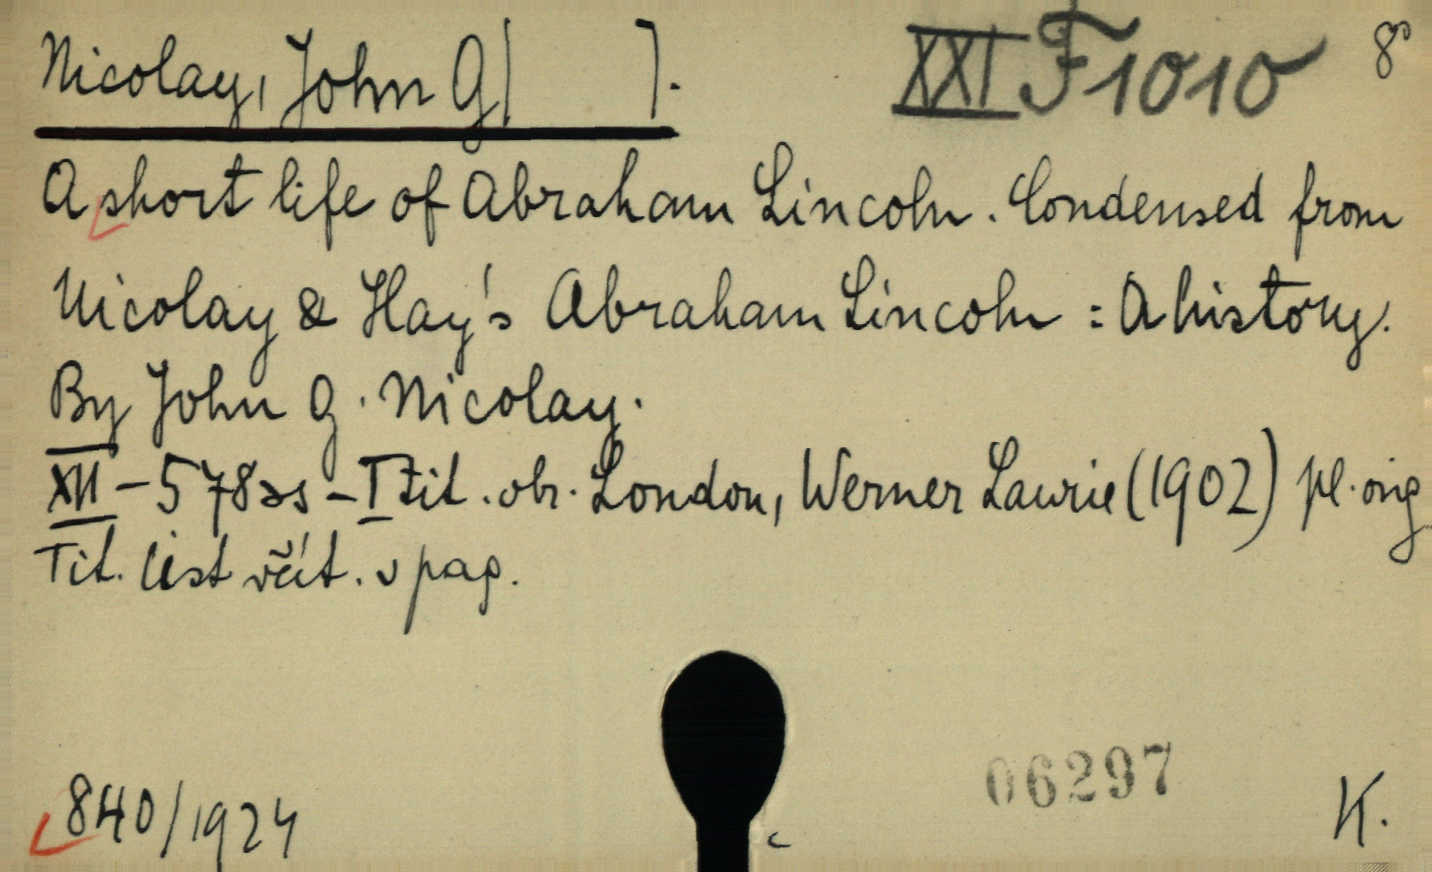 Nicolay, John G(        ).
XXI F 1010
8°
A short life of Abraham Lincoln. Condensed from
Nicolay & Hay's Abraham Lincoln : A history.
By John G. Nicolay.
XII – 578 ss – I tit. obr. London, Werner Laurie (1902) pl. orig
Tit. list včít. v pag.
06297
840/1924
K.